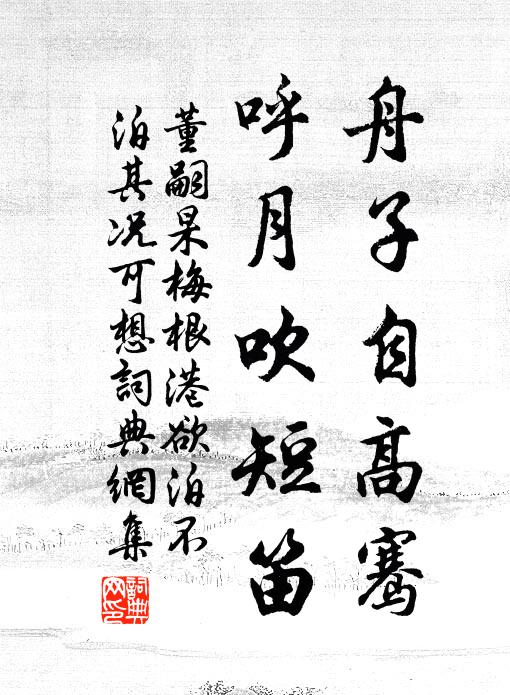 舟子自高騫
呼月吹短笛
董嗣杲梅根港欲泊不
泊其况可想詞典網集
詞典網印